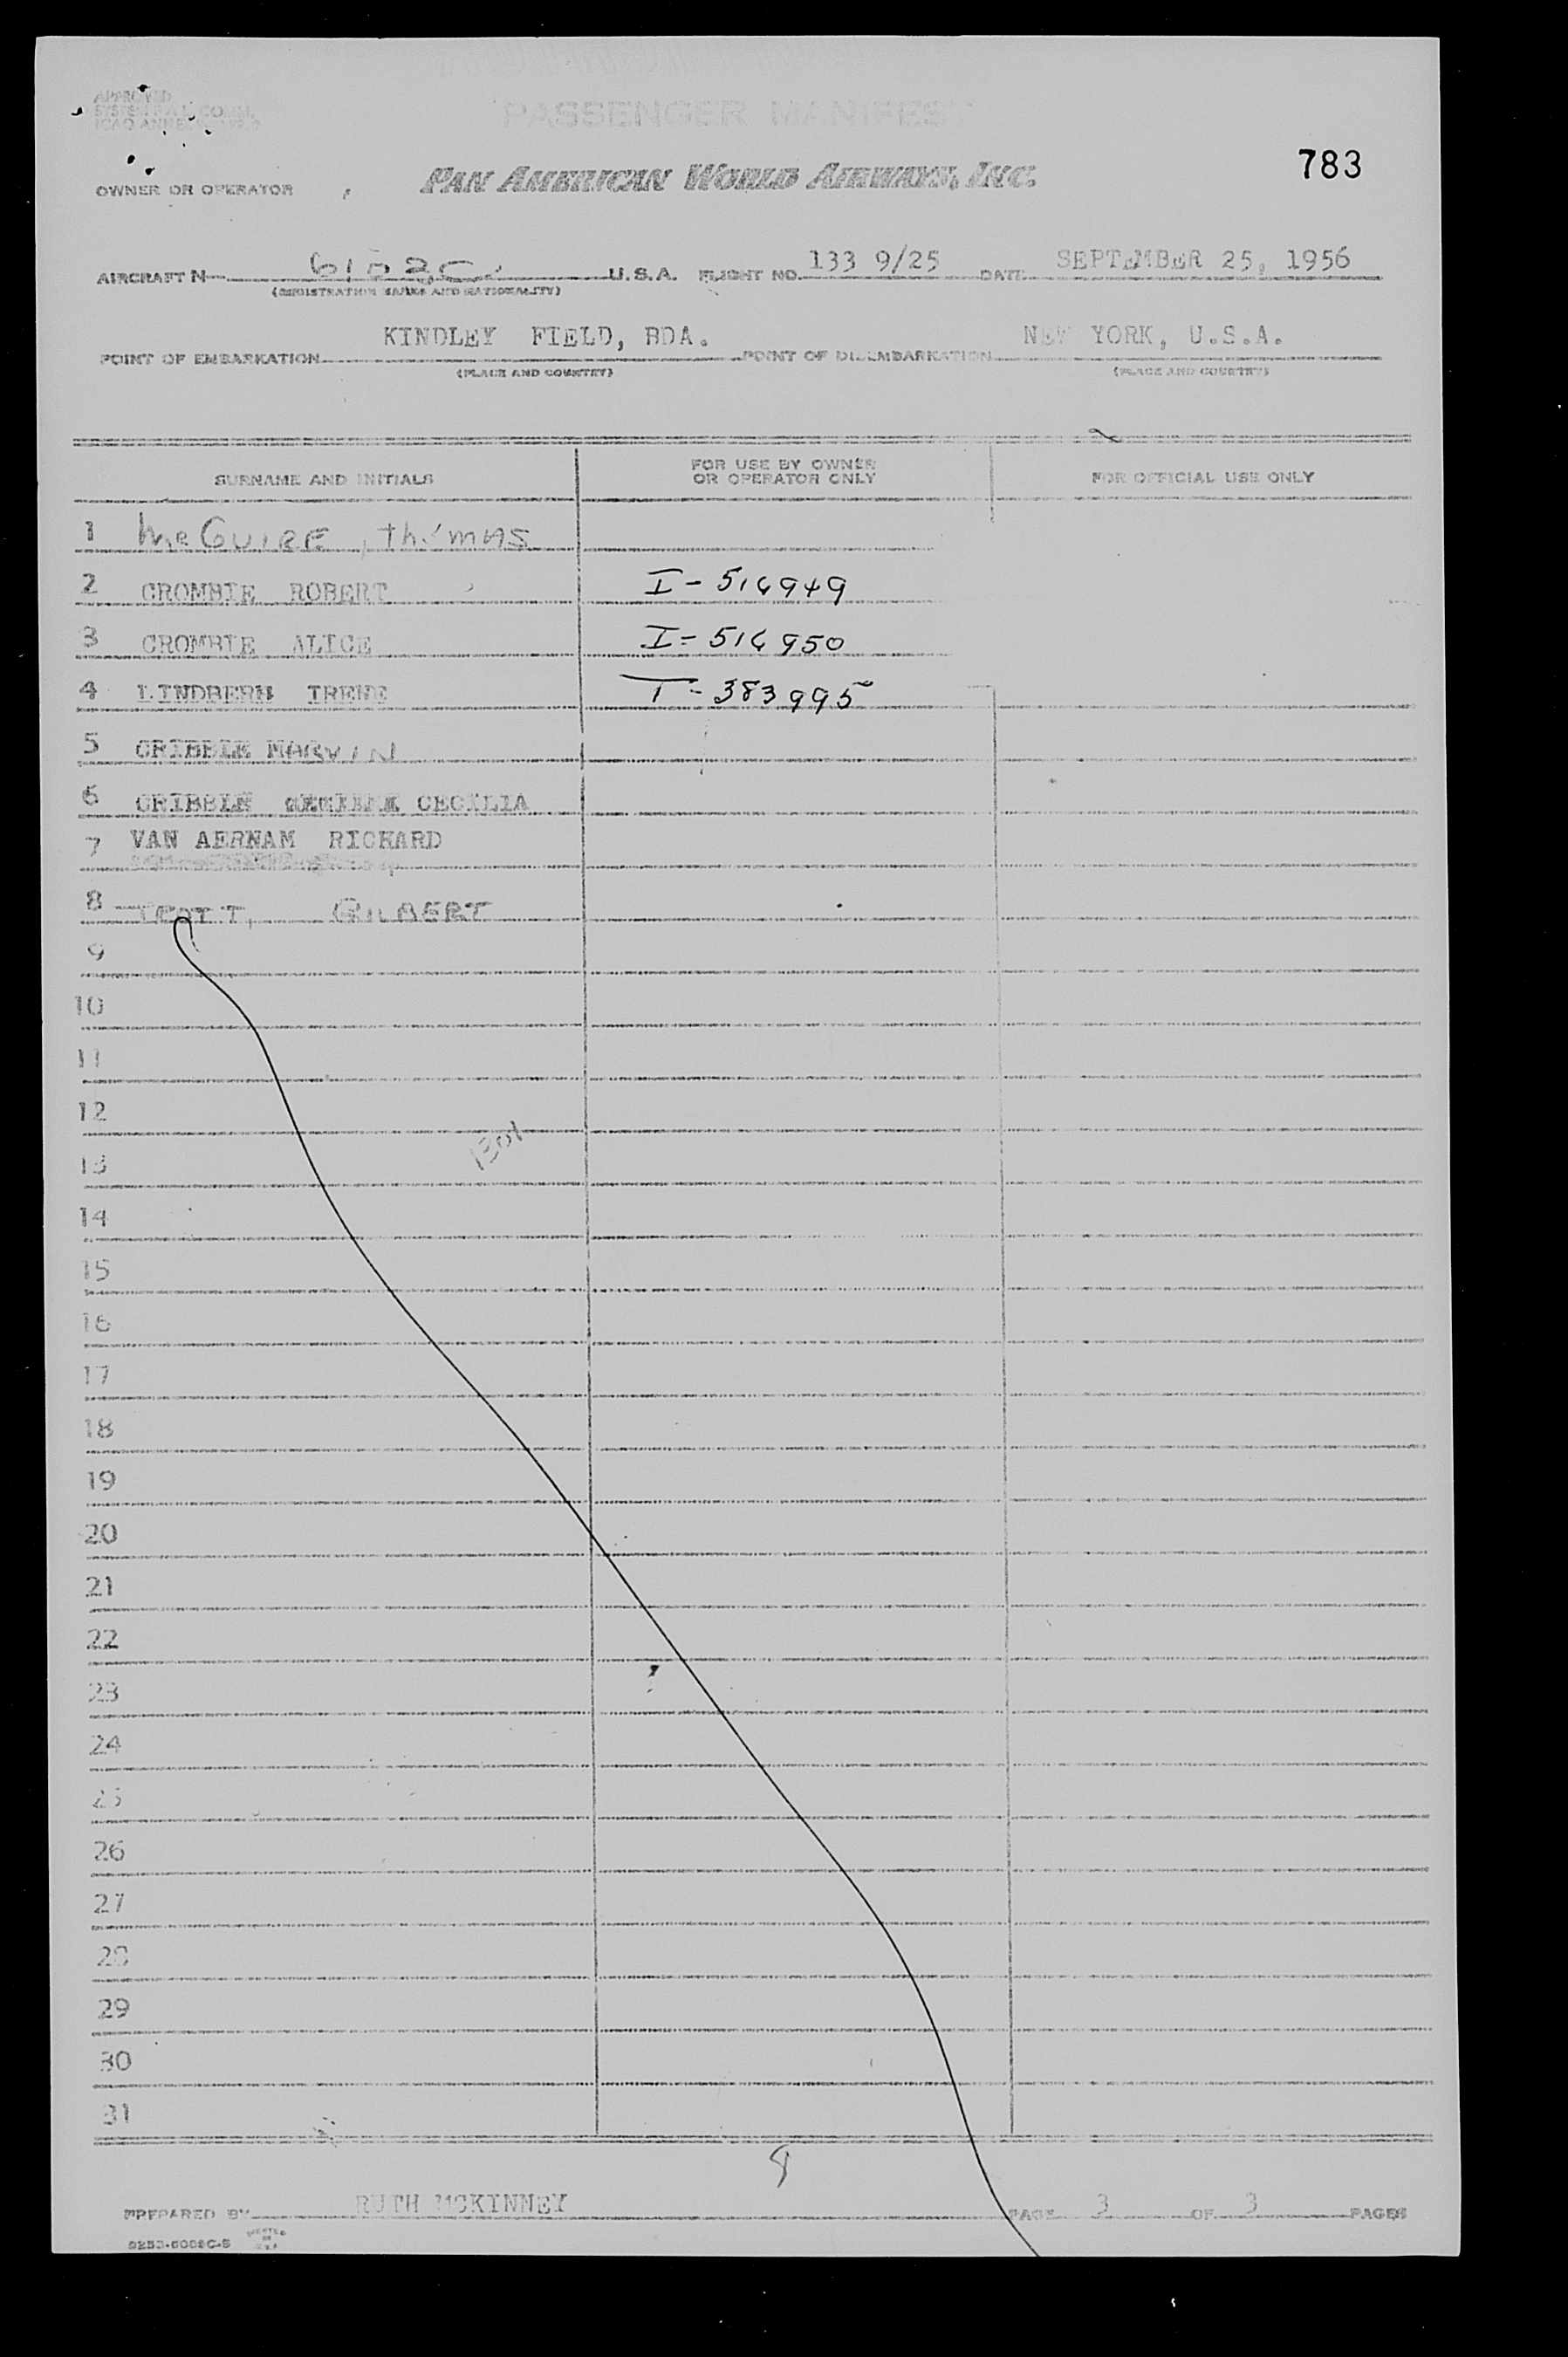 APPROVED
PASSENGER MANIFEST
783
OWNER OR OPERATOR PAN AMERICAN WORLD AIRWAYS, INC.
AIRCRAFT N U.S.A. FLIGHT NO. 133 9/25 DATE SEPTEMBER 25, 1956
(REGISTRATION MARKS AND NATIONALITY)
POINT OF EMBARKATION KINDLEY FIELD, BDA. POINT OF DISEMBARKATION NEW YORK, U.S.A.
(PLACE AND COUNTRY) (PLACE AND COUNTRY)
SURNAME AND INITIALS FOR USE BY OWNER OR OPERATOR ONLY FOR OFFICIAL USE ONLY
1 McGUIRE, thomAS
2 CROMBIE ROBERT I-516949
3 CROMBIE ALICE I-516950
4 IRENE 383995
5 GRIBBIN MARVIN
6 GRIBBIN CECILIA
7 VAN AERNAM RICHARD
8 GILBERT
9
10
11
12
13
14
15
16
17
18
19
20
21
22
23
24
25
26
27
28
29
30
31
PREPARED BY RUTH MCKINNEY PAGE 3 OF 3 PAGES